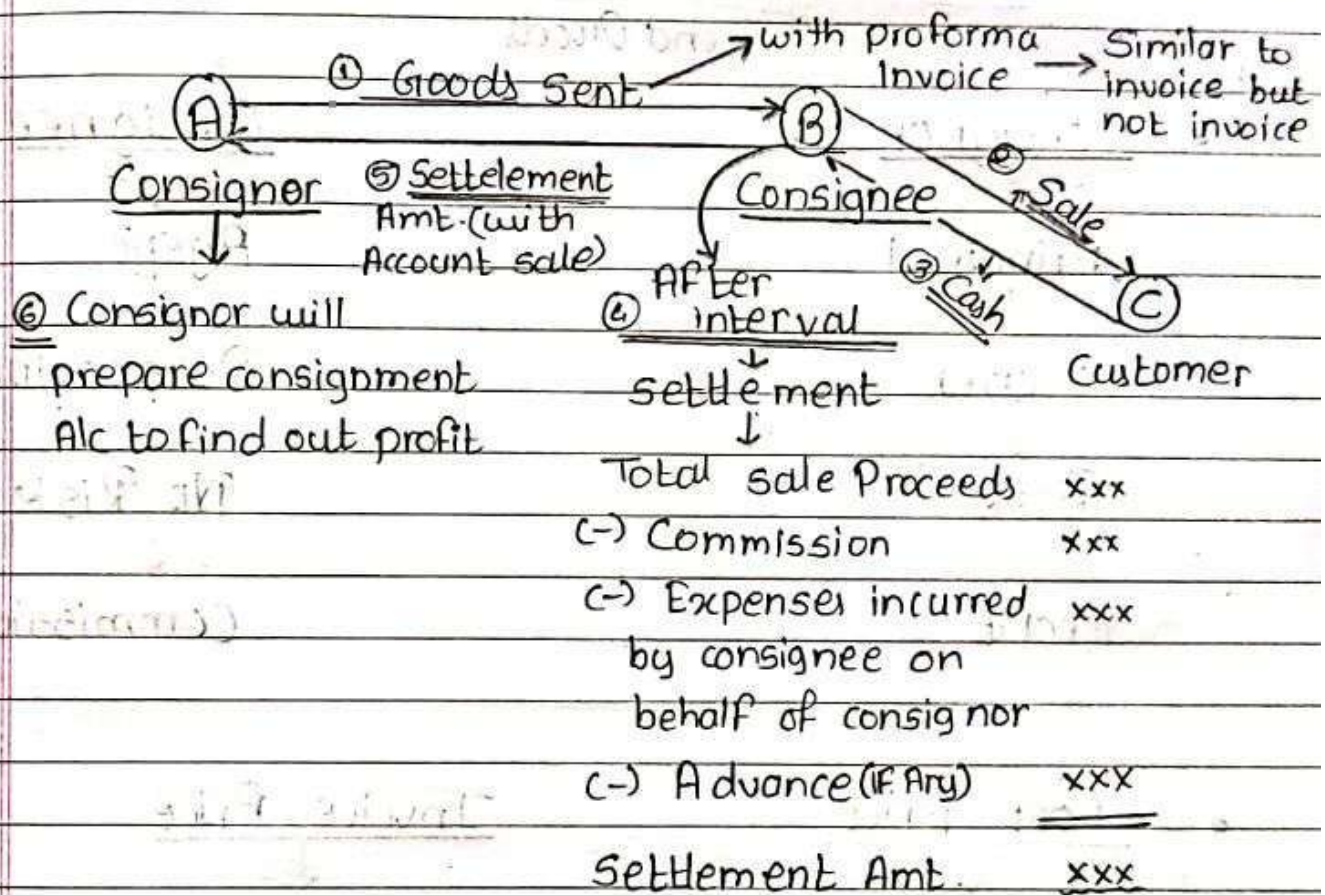 with proforma → Similar to
① Goods Sent
Invoice
invoice but
not invoice
A
B
Consignor
⑤ Settelement
Amt. (with
Account sale)
Consignee
② Sale
③ Cash
C
Customer
⑥ Consignor will
prepare consignment
A/c to find out profit
After
④ interval
↓
settlement
↓
Total sale Proceeds xxx
(-) Commission xxx
(-) Expenses incurred xxx
by consignee on
behalf of consignor
(-) Advance (IF Any) xxx
Settlement Amt. xxx